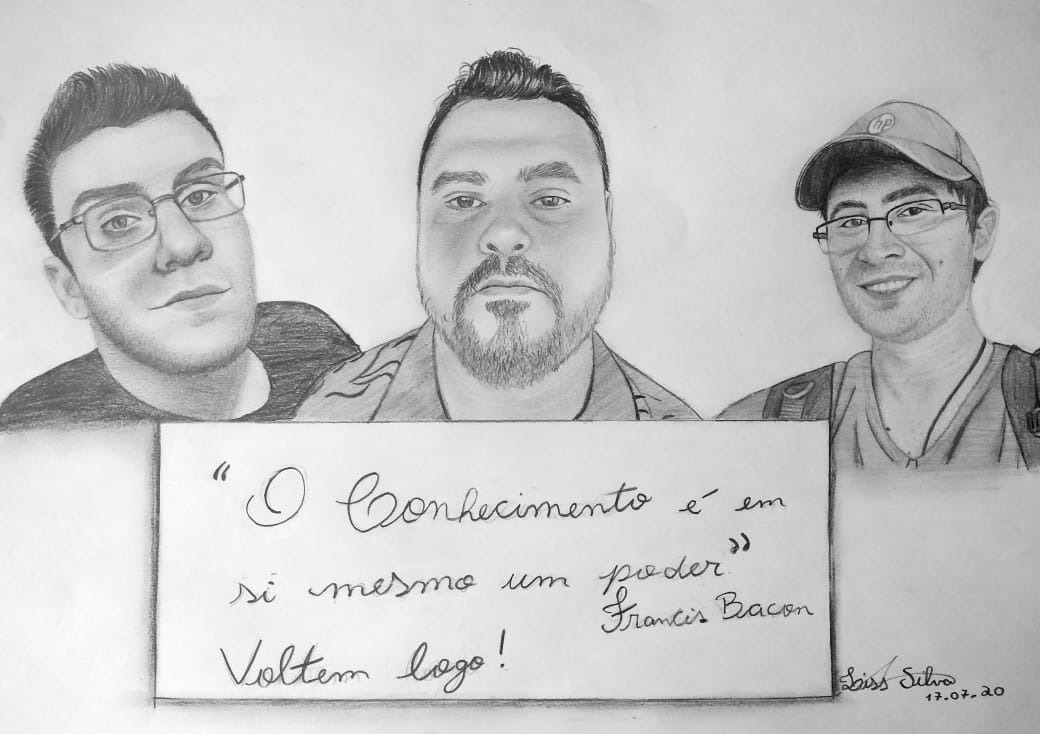 hp
“O Conhecimento é em
si mesmo um poder”
Francis Bacon
Voltem logo!
Silva
17.07.20